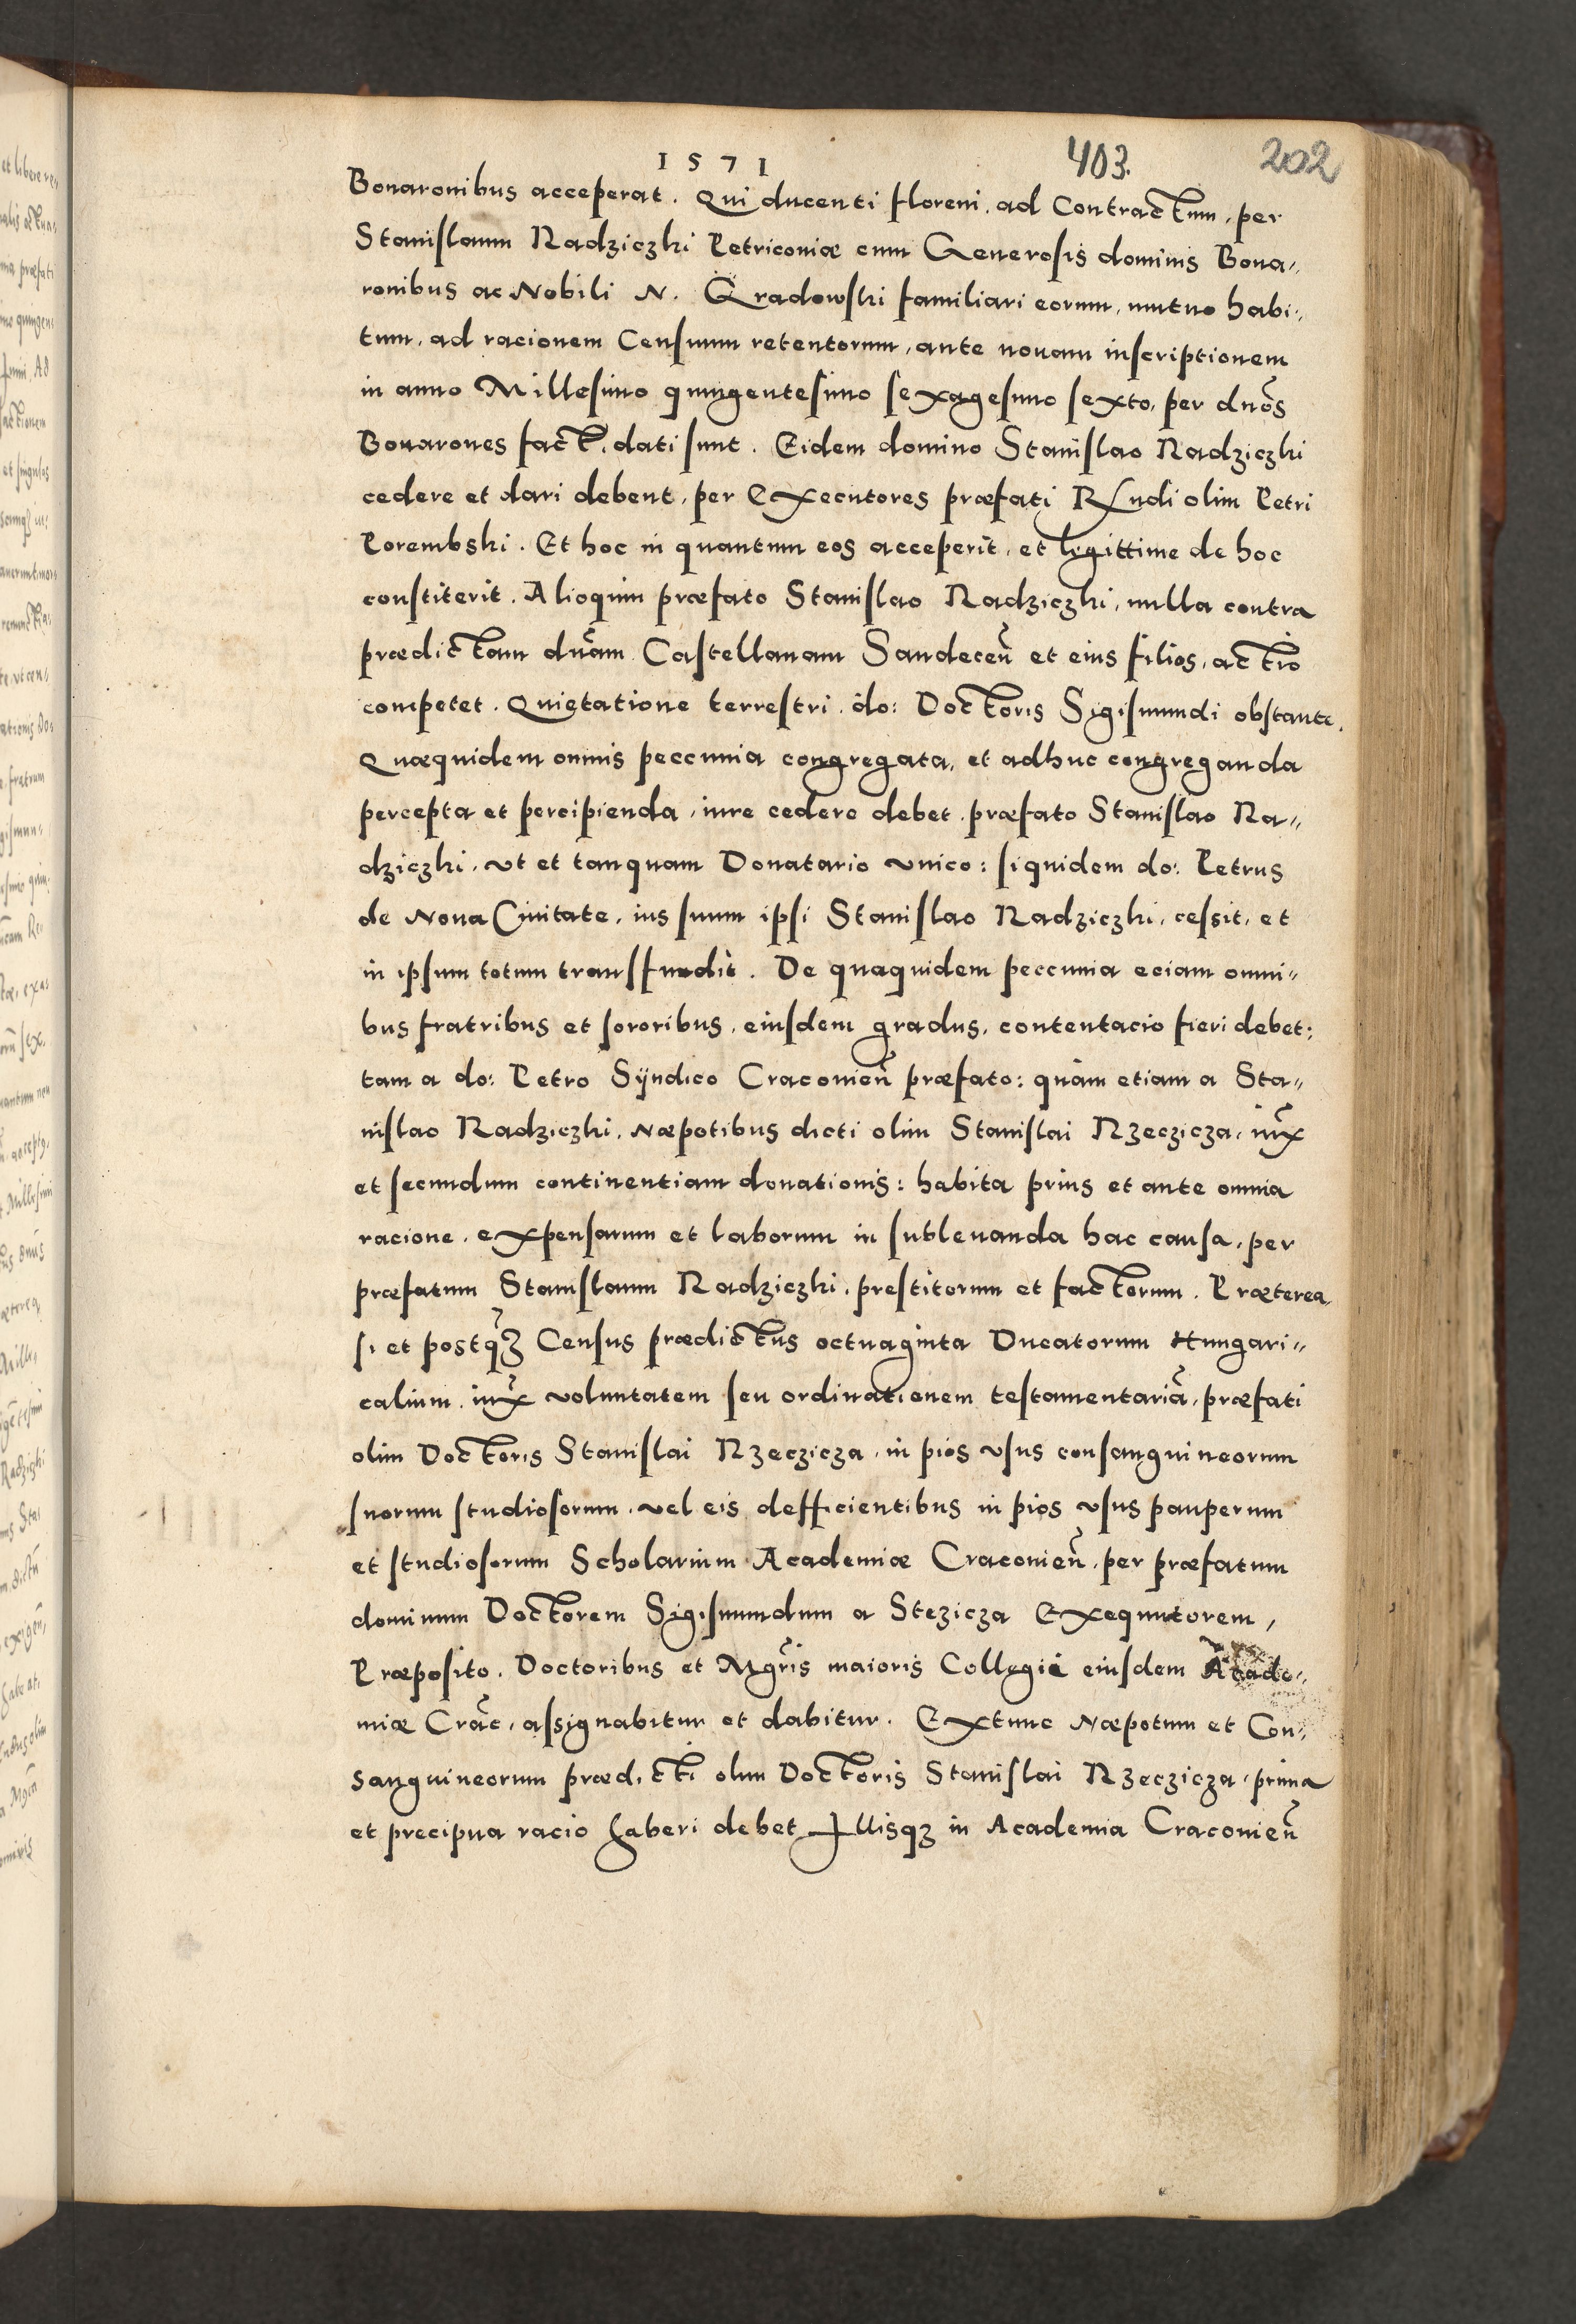 1571
403.
202
Bonaronibus acceperat. Qui ducenti floreni, ad Contractum, per
Stanislaum Radziczki Petriconiæ cum Generosis dominis Bona〃
ronibus ac Nobili N. Gradowski familiari eorum, mutuo habi〃
tum, ad racionem Censuum retentorum, ante nouam inscriptionem
in anno Millesimo quingentesimo sexagesimo sexto, per dnōs
Bonarones fact. dati sunt. Eidem domino Stanislao Radziczki
cedere et dari debent, per Executores præfati Rndi olim Petri
Porembski. Et hoc in quantum eos acceperit, et legittime de hoc
constiterit. Alioquin præfato Stanislao Radziczki, nulla contra
prædictam dnām Castellanam Sandecen̄ et eius filios, actio
competet. Quietatione terrestri do: Doctoris Sigismundi obstante.
Quæquidem omnis peccunia congregata, et adhuc congreganda
percepta et percipienda, iure cedere debet præfato Stanislao Ra〃
dziczki, vt et tanquam Donatario vnico: siquidem do: Petrus
de Noua Ciuitate, ius suum ipsi Stanislao Radziczki, cessit, et
in ipsum totum transfudit. De quaquidem peccunia eciam omni〃
bus fratribus et sororibus, eiusdem gradus, contentacio fieri debet:
tam a do: Petro Sÿndico Craconien̄ præfato: quàm etiam a Sta〃
nislao Radziczki. Næpotibus dicti olim Stanislai Rzeczicza, iux̄
et secundum continentiam donationis: habita prius et ante omnia
racione, expensarum et laborum in subleuanda hac causa, per
præfatum Stanislaum Radziczki, prestitorum et factorum. Præterea
si et postq̄ꝫ Census prædictus octuaginta Ducatorum Hungari〃
calium, iux̄ voluntatem seu ordinationem testamentariā, præfati
olim Doctoris Stanislai Rzeczicza, in pios vsus consanguineorum
suorum studiosorum, vel eis defficientibus in pios vsus pauperum
et studiosorum Scholarium Academiæ Craconien̄, per præfatum
dominum Doctorem Sigismundum a Stezicza Exequutorem,
Præposito, Doctoribus et Mgrīs maioris Collegii eiusdem Acade〃
miæ Crāc, assignabitur et dabitur. Extunc Næpotum et Con〃
sanguineorum prædicti olim Doctoris Stanislai Rzeczicza, prima
et precipua racio haberi debet Illisqꝫ in Academia Craconien̄